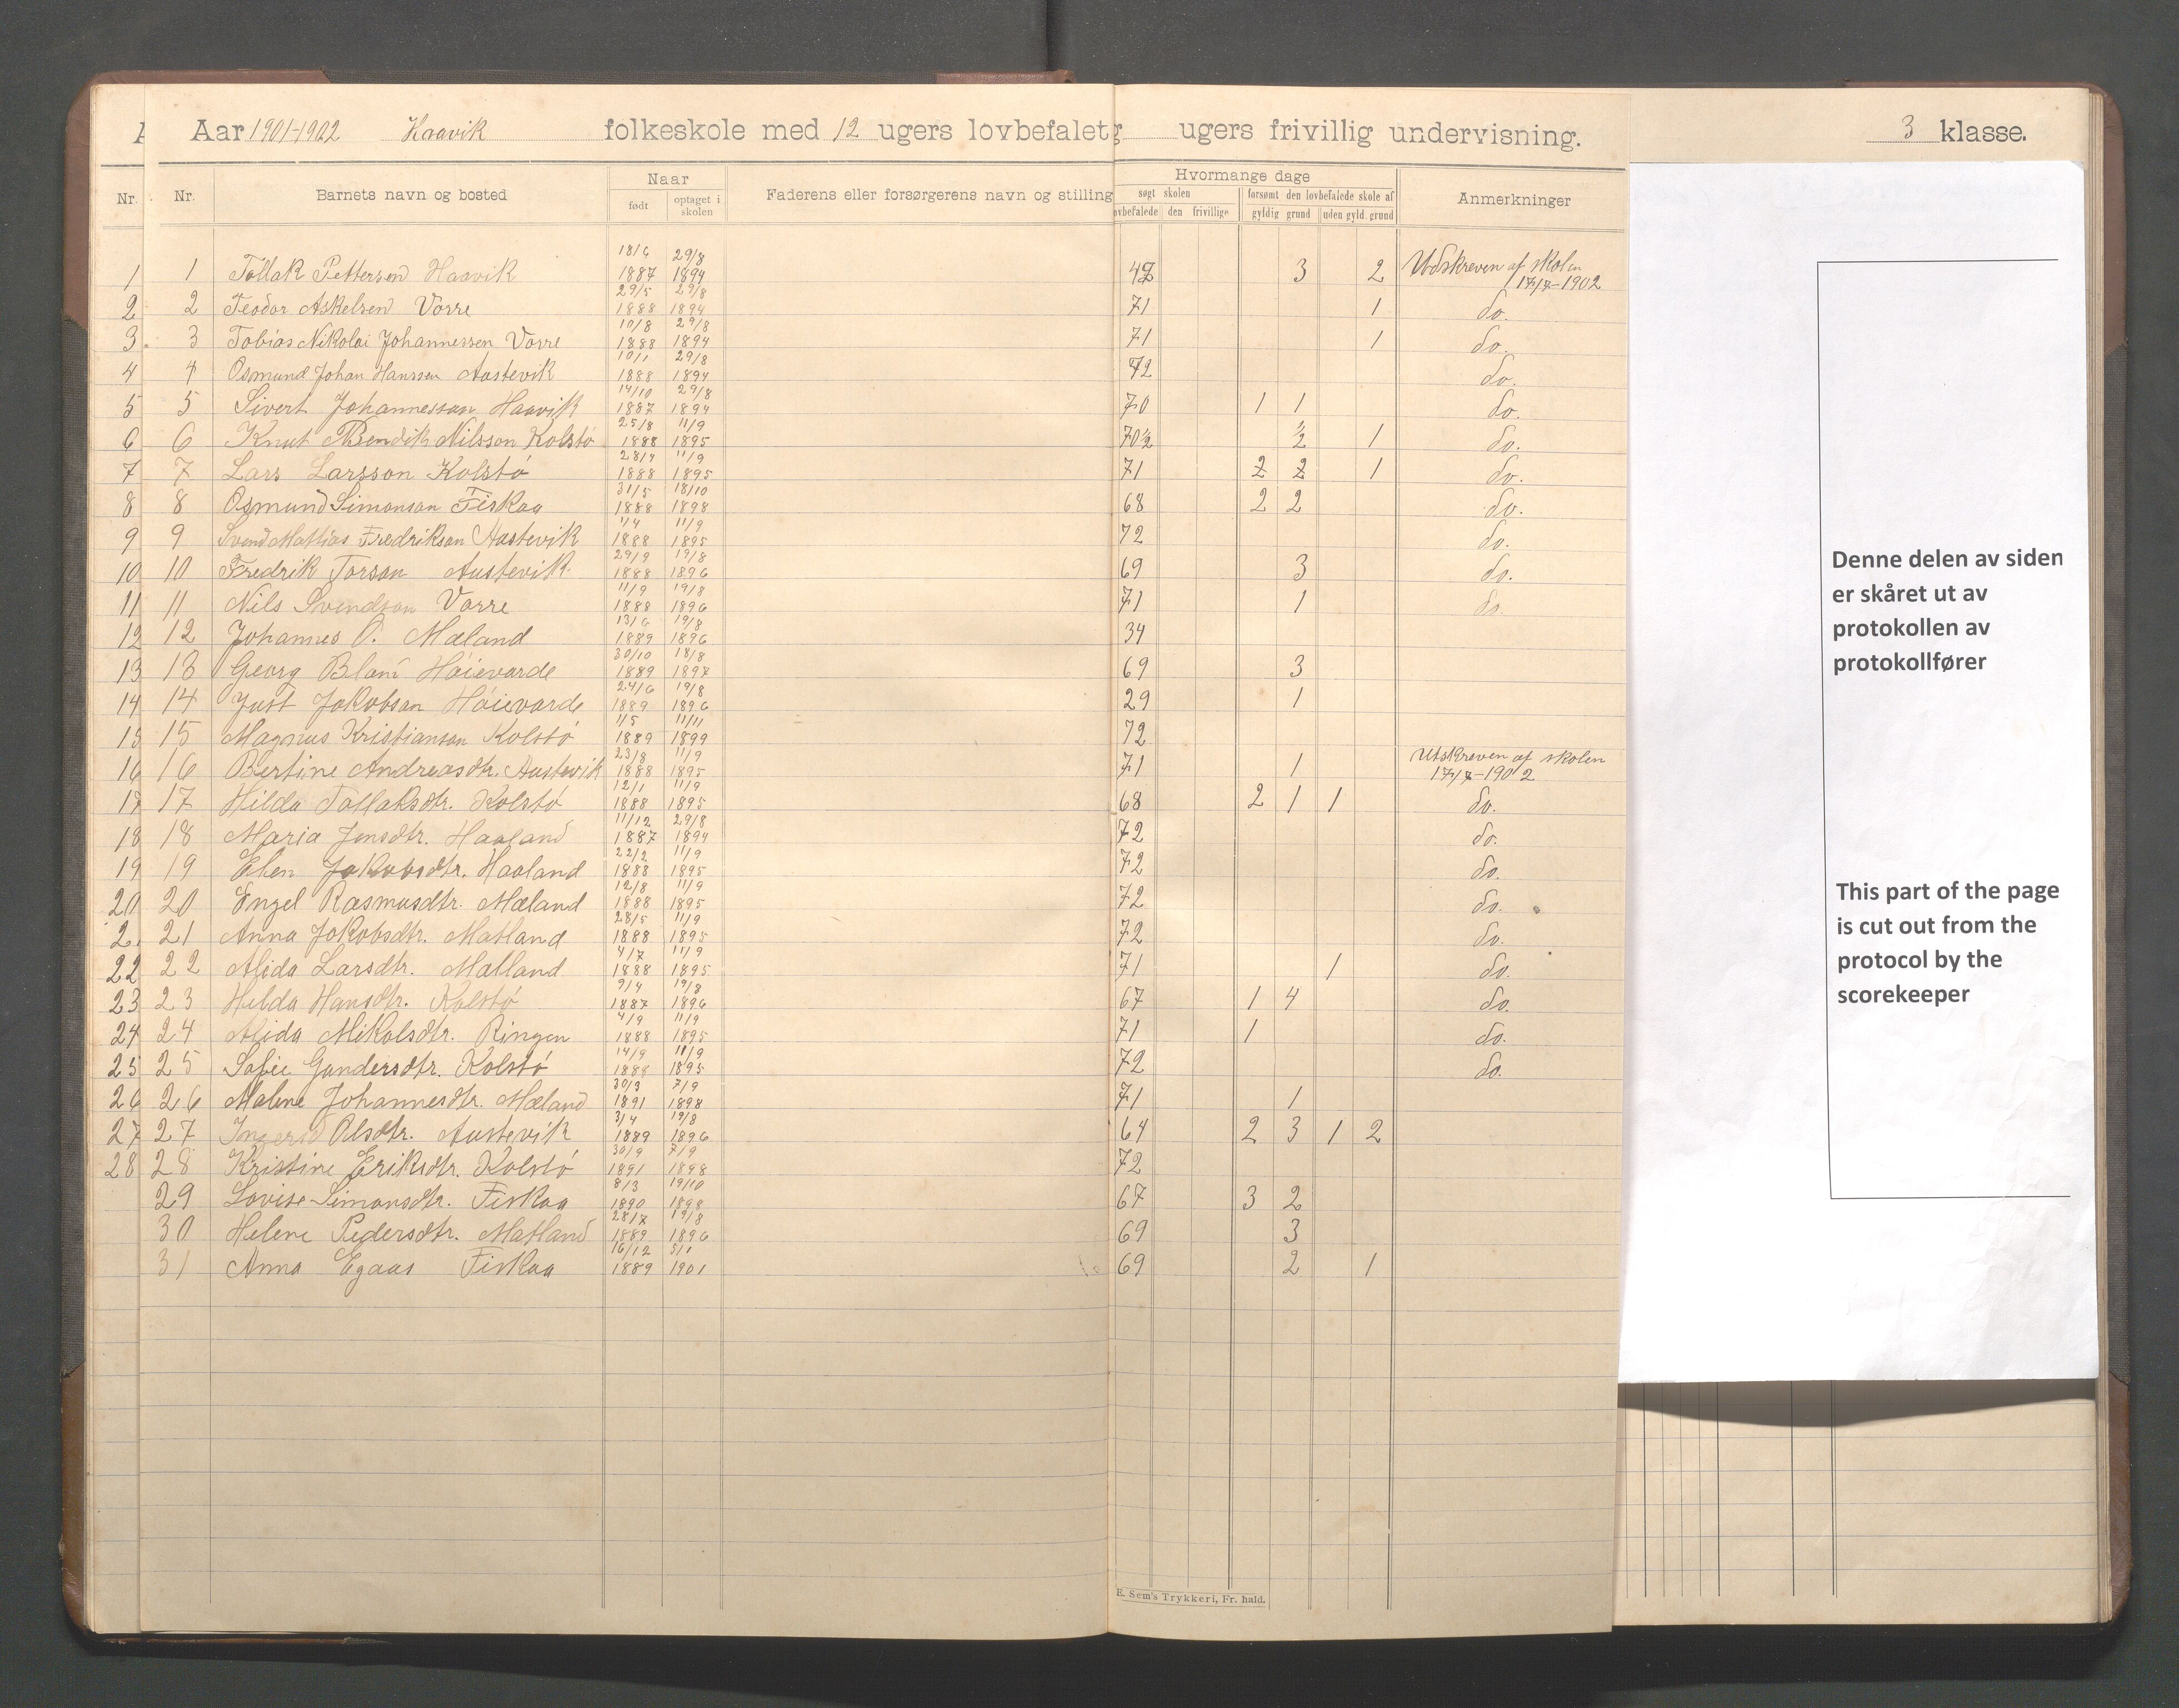 Aar 1901-1902 Haavik folkeskole med 12 ugers lovbefalet ugers frivillig undervisning. 3 klasse.
Nr. Nr. Barnets navn og bosted Naar født optaget i skolen Faderens eller forsørgerens navn og stilling Hvormange dage søgt skolen den frivillige forsømt den lovbefalede skole af gyldig grund uden gyld. grund Anmerkninger
1 1 Tollak Pettersen Haavik 18/6 1887 29/8 1894 3 2 Udskreven af skolen 17/7-1902
2 2 Teodor Askelsen Vorre 29/5 1888 29/8 1894 71 1 do.
3 3 Tobias Nikolai Johannessen Vorre 10/8 1888 29/8 1894 71 1 do.
4 4 Osmund Johan Hanssen Austevik 10/1 1888 29/8 1894 72 do.
5 5 Sivert Johannesson Haavik 14/10 1887 29/8 1894 70 1 1 do.
6 6 Knut Bendik Nilsson Kolstø 25/8 1888 11/9 1895 70½ ½ 1 do.
7 7 Lars Larsson Kolstø 28/9 1888 11/9 1895 71 1 do.
8 8 Osmund Simonson Fiskaa 31/5 1888 18/10 1898 68 2 2 do.
9 9 Svend Mattias Fredrikson Austevik 1/4 1888 11/9 1895 72 do.
10 10 Fredrik Torson Austevik 29/9 1888 19/8 1896 69 3 do.
11 11 Nils Svendson Vorre 11/9 1888 19/8 1896 71 1 do.
12 12 Johannes O. Mæland 13/6 1889 19/8 1896 34
13 13 Georg Høievarde 30/10 1889 18/8 1897 69 3
14 14 Just Jakobson Høievarde 24/6 1889 19/8 1896 29 1
15 15 Magnus Kristianson Kolstø 1/5 1889 11/11 1899 72
16 16 Bertine Andreasdtr. Austevik 23/8 1888 11/9 1895 71 1 Utskreven af skolen 17/7-1902
17 17 Hilda Tollaksdtr. Kolstø 12/1 1888 11/9 1895 68 2 1 1 do.
18 18 Maria Jensdtr. Haaland 11/12 1887 29/8 1894 72 do.
19 19 Elen Jakobsdtr. Haaland 22/2 1888 11/9 1895 72 do.
20 20 Engel Rasmusdtr. Mæland 12/8 1888 11/9 1895 72 do.
2 21 Anna Jakobsdtr. Matland 28/5 1888 11/9 1895 72 do.
22 22 Alida Larsdtr. 4/7 1888 11/9 1895 71 1 do.
23 23 Hilda Hansdtr. Kolstø 9/4 1887 19/8 1896 67 1 4 do.
24 24 Alida Mikalsdtr. Ringen 4/9 1888 11/9 1895 71 1 do.
25 25 Sofie Gundersdtr. Kolstø 14/9 1888 11/9 1895 72 do.
26 26 Malene Johannesdtr. Mæland 30/3 1891 7/9 1898 71 1
27 27 Olsdtr. Austevik 3/4 1889 19/8 1896 64 2 3 1 2
28 28 Kristine Eriksdtr. Kolstø 30/9 1891 7/9 1898 72
29 Lovise Simonsdtr. Fiskaa 8/3 1890 19/10 1898 67 3 2
30 Helene Pedersdtr. Matland 28/7 1889 19/8 1896 69 3
31 Anna Egaas Fiskaa 16/12 1889 5/1 1901 69 2 1
E. Sem's Trykkeri, Fr. hald.
Denne delen av siden
er skåret ut av
protokollen av
protokollfører
This part of the page
is cut out from the
protocol by the
scorekeeper